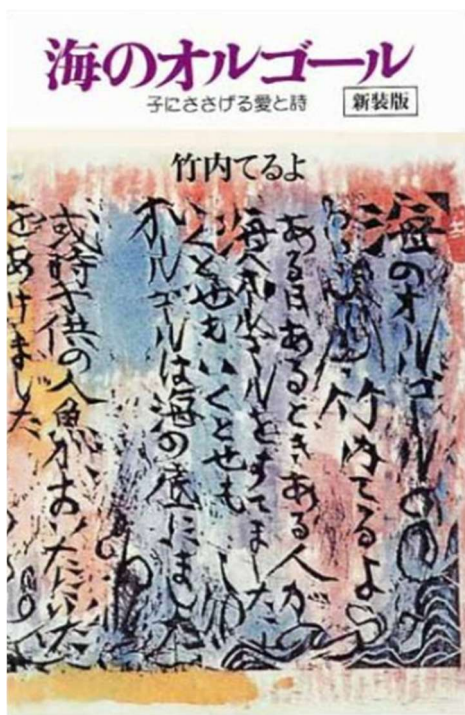 海のオルゴール
子にささげる愛と詩
新装版
竹内てるよ
海のオルゴールの
竹内てるよ
ある日あるときある人が
海へオルゴールをすてました
いくとせもいくとせも
オルゴールは海の底にまし
或時子供の人魚がおいたに
をあけました